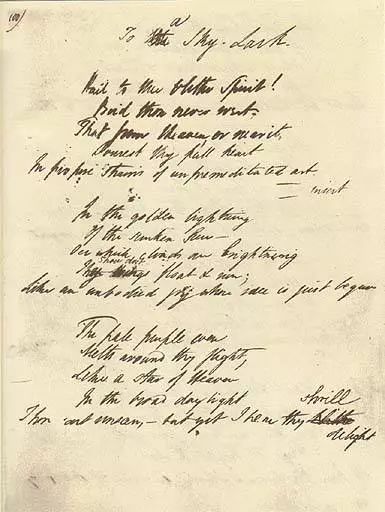 100)
To the a Sky-Lark.
Hail to thee blithe Spirit!
Bird thou never wert.
That from Heaven, or near it,
Pourest thy full heart
In profuse strains of unpremeditated art
insert
In the golden lightning
Of the sunken Sun—
Oer which clouds are brightning
Thou dost float & run;
Like an unbodied joy whose race is just begun
The pale purple even
Melts around thy flight,
Like a star of Heaven
In the broad daylight
Thou art unseen,— but yet I hear thy blithe shrill
delight